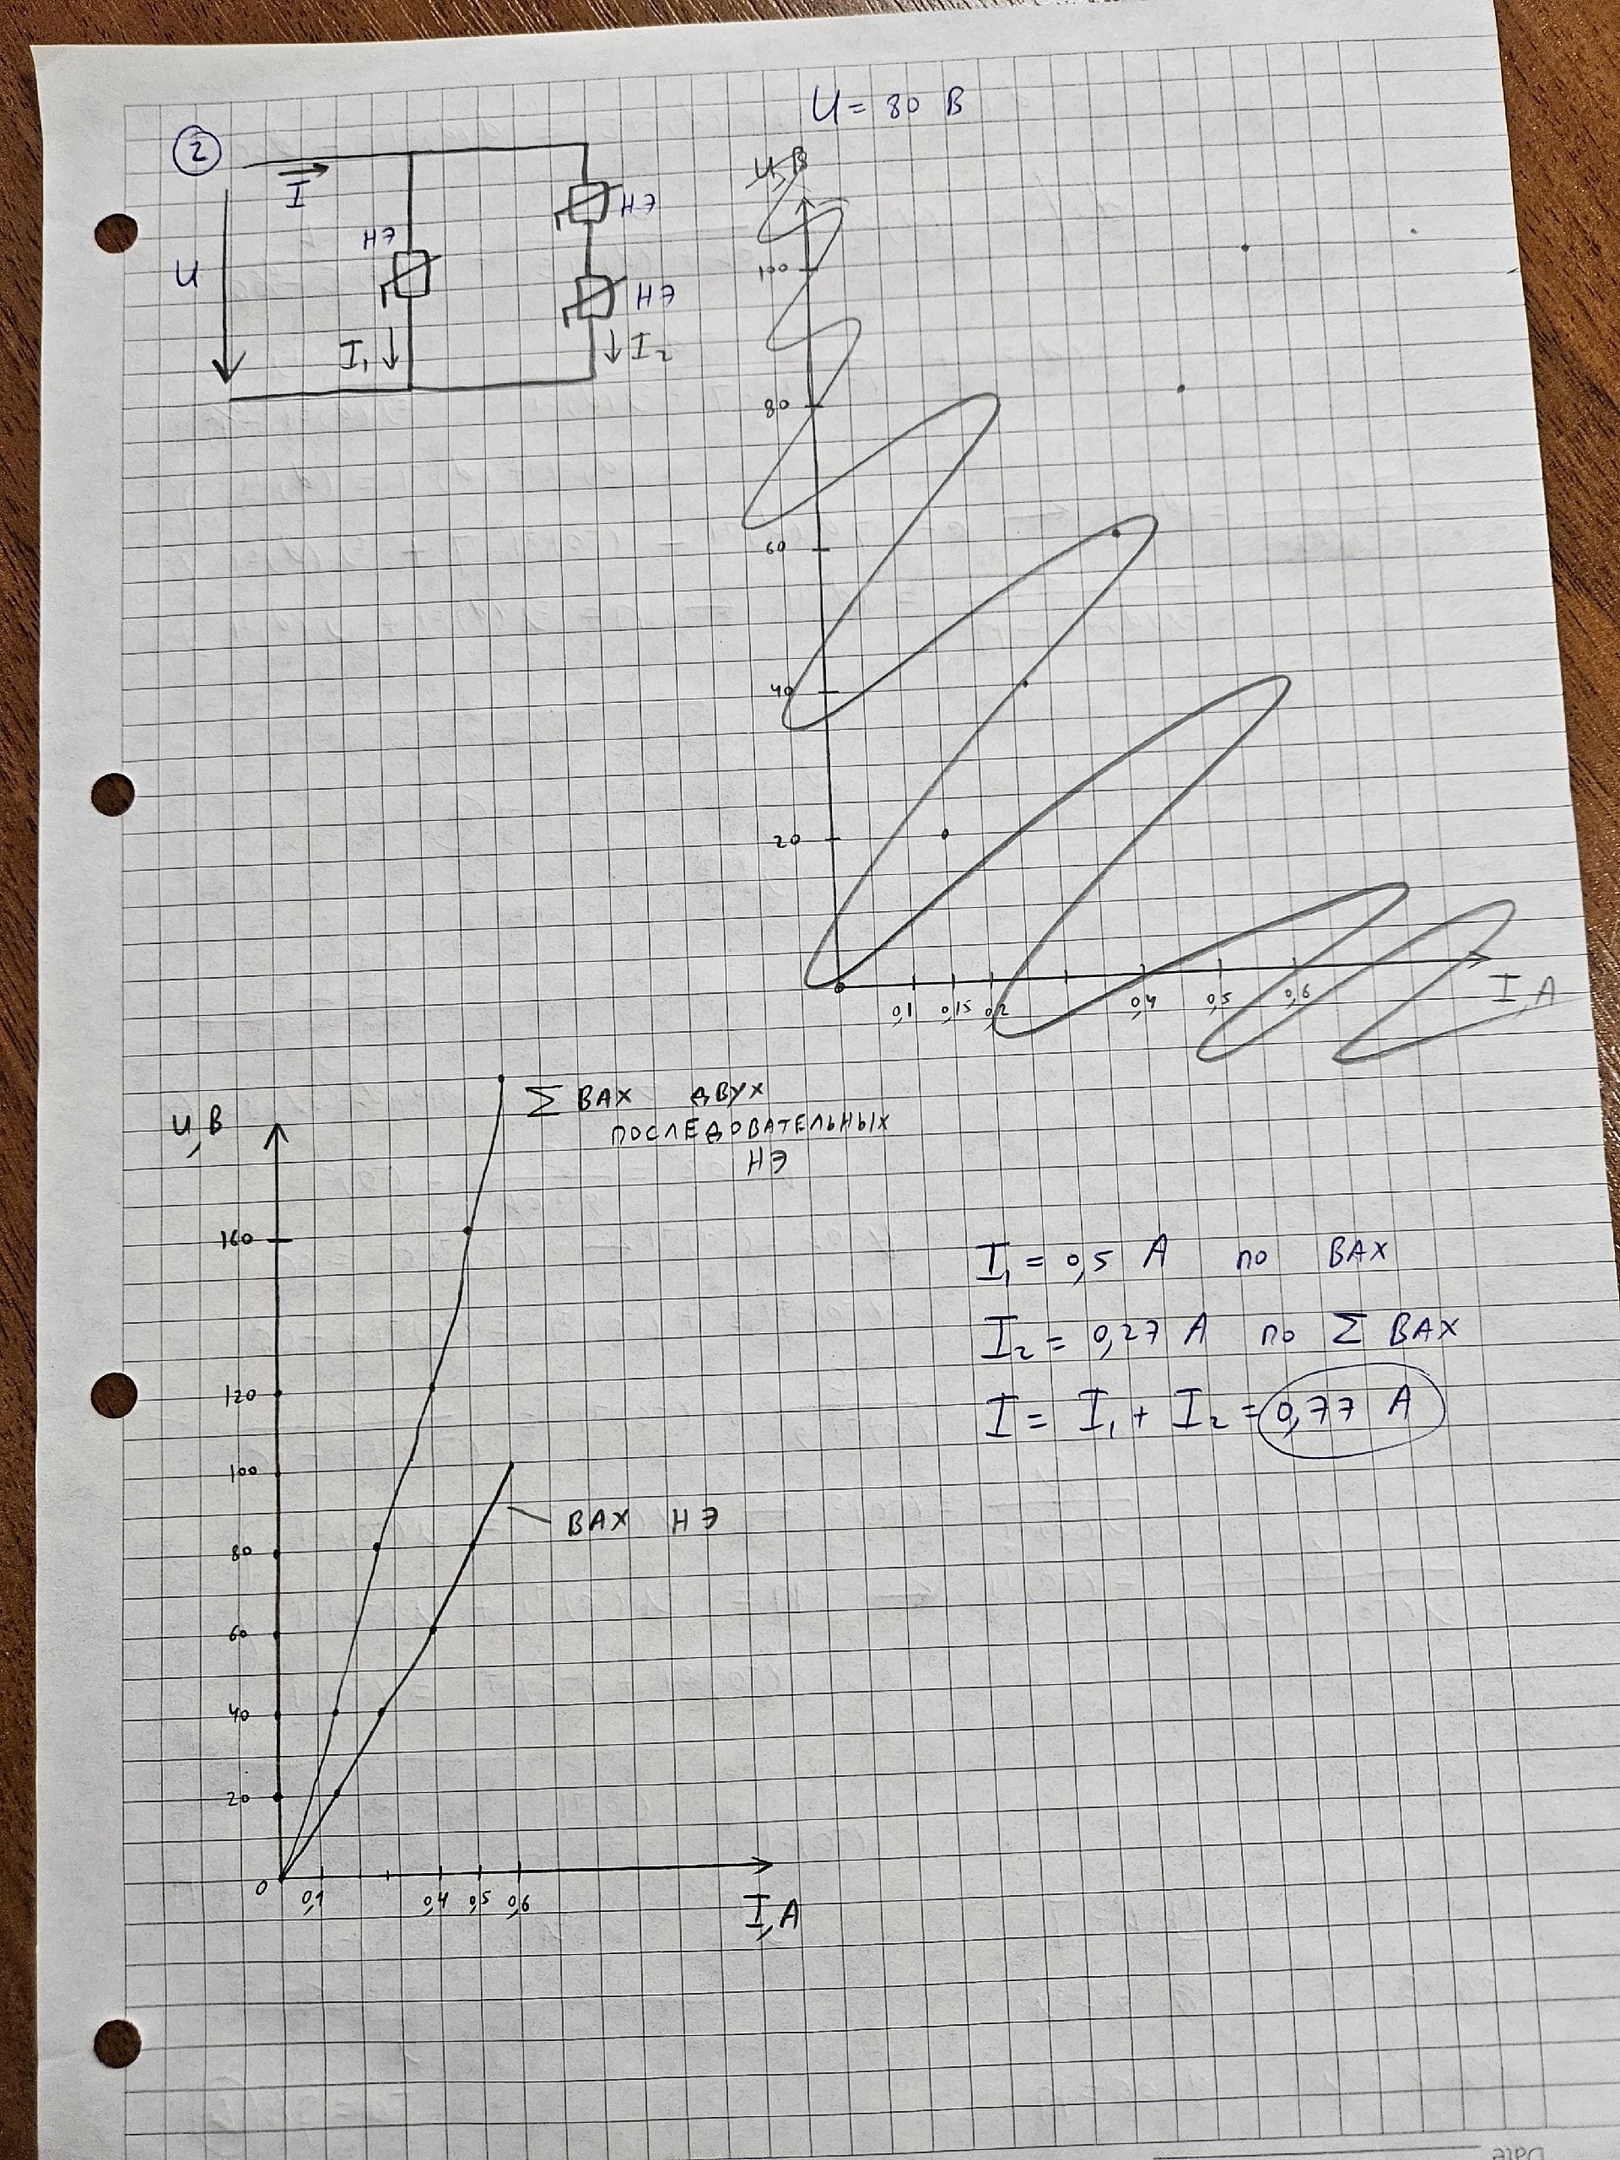 2
U = 80 В
I
U
НЭ
НЭ
НЭ
I₁
I₂
U,В
100
80
60
40
20
0
0,1
0,15
0,2
0,4
0,5
0,6
I,А
U,В
∑ ВАХ двух
последовательных
НЭ
160
120
100
80
60
40
20
0
ВАХ НЭ
0,1
0,4
0,5
0,6
I,А
I₁ = 0,5 А по ВАХ
I₂ = 0,27 А по ∑ ВАХ
I = I₁ + I₂ = 0,77 А
Date